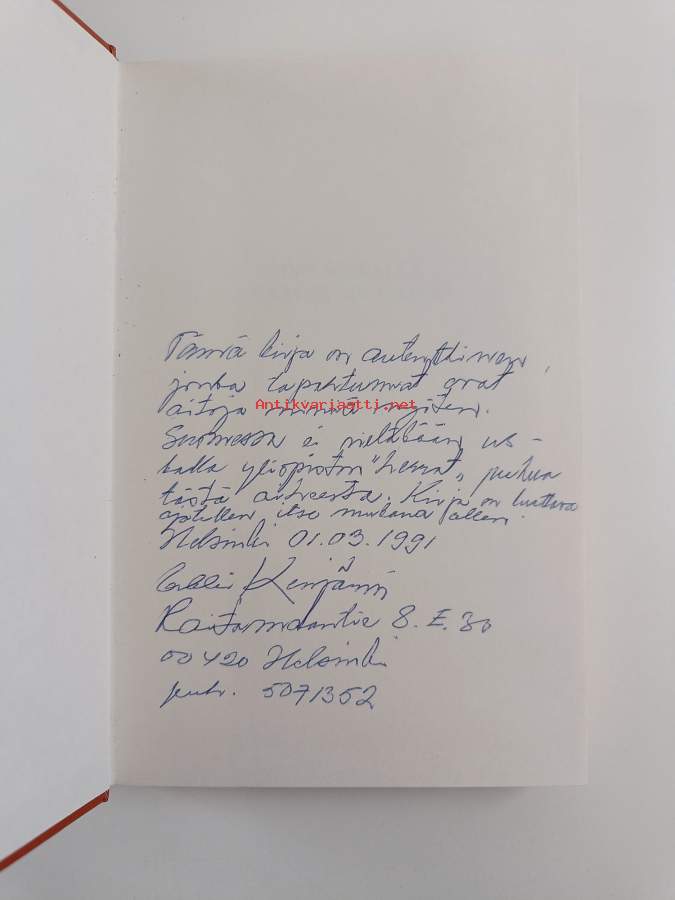 Tämä kirja on autenttinen,
jonka tapahtumat ovat
aitoja
Antikvariaatti.net
Suomessa ei vielkään us-
kalla yliopiston "herrat" puhua
tästä aiheesta. Kirja on luettava
ajatellen, itse mukana ollen.
Helsinki 01.03.1991
Raitamaantie 8. E. 30
00420 Helsinki
puh. 5071352